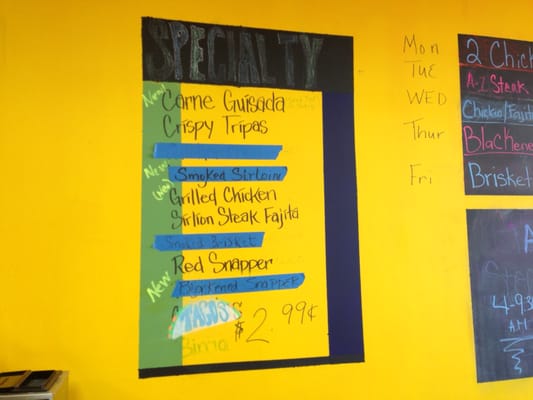 SPECIALTY
New!
Carne Guisada
Crispy Tripas
New
Smoked Sirloin
(New)
Grilled Chicken
Sirlion Steak Fajita
Smoked Brisket
Red Snapper
New
Blackened Snapper
TACOS
$2.99¢
Birria
Mon
Tue
WED
Thur
Fri
2 Chick
A-1 Steak
Chicken/Fajita
Blackene
Brisket
A
4-9:30
A.M